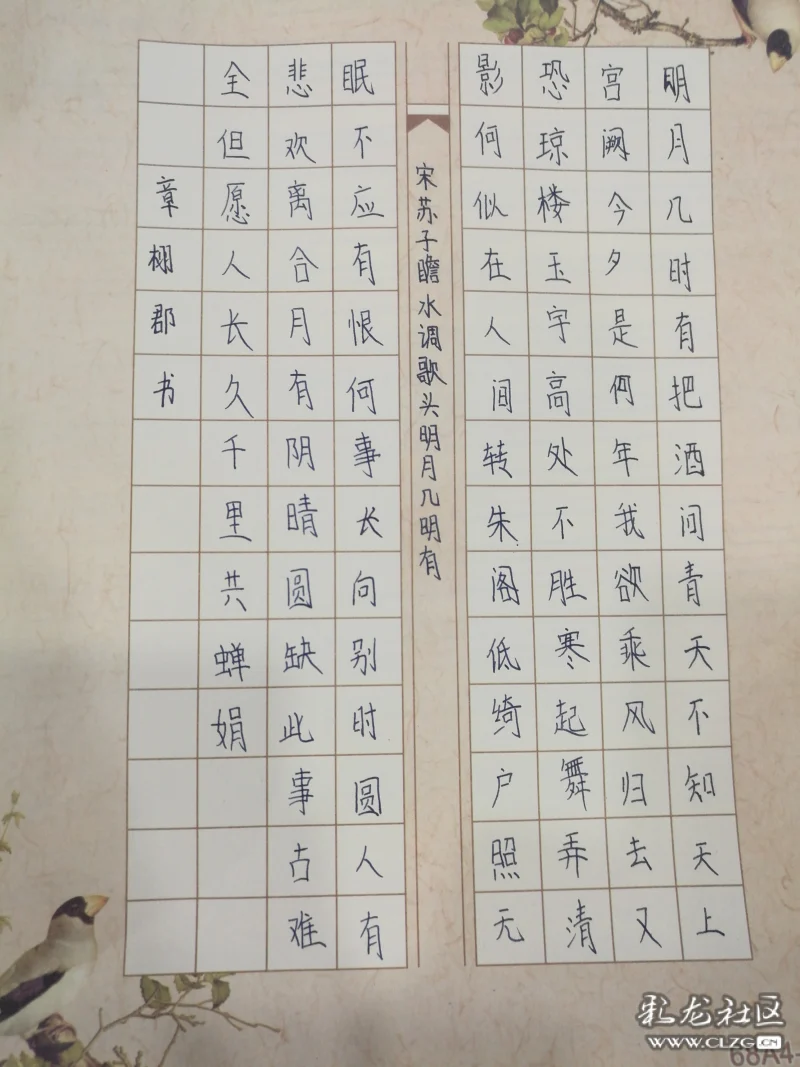 明月几时有把酒问青天不知天上
宫阙今夕是何年我欲乘风归去又
恐琼楼玉宇高处不胜寒起舞弄清
影何似在人间转朱阁低绮户照无
宋苏子瞻水调歌头明月几明有
眠不应有恨何事长向别时圆人有
悲欢离合月有阴晴圆缺此事古难
全但愿人长久千里共蝉娟
章郡书
彩龙社区
WWW.CLZG.CN
68A4-